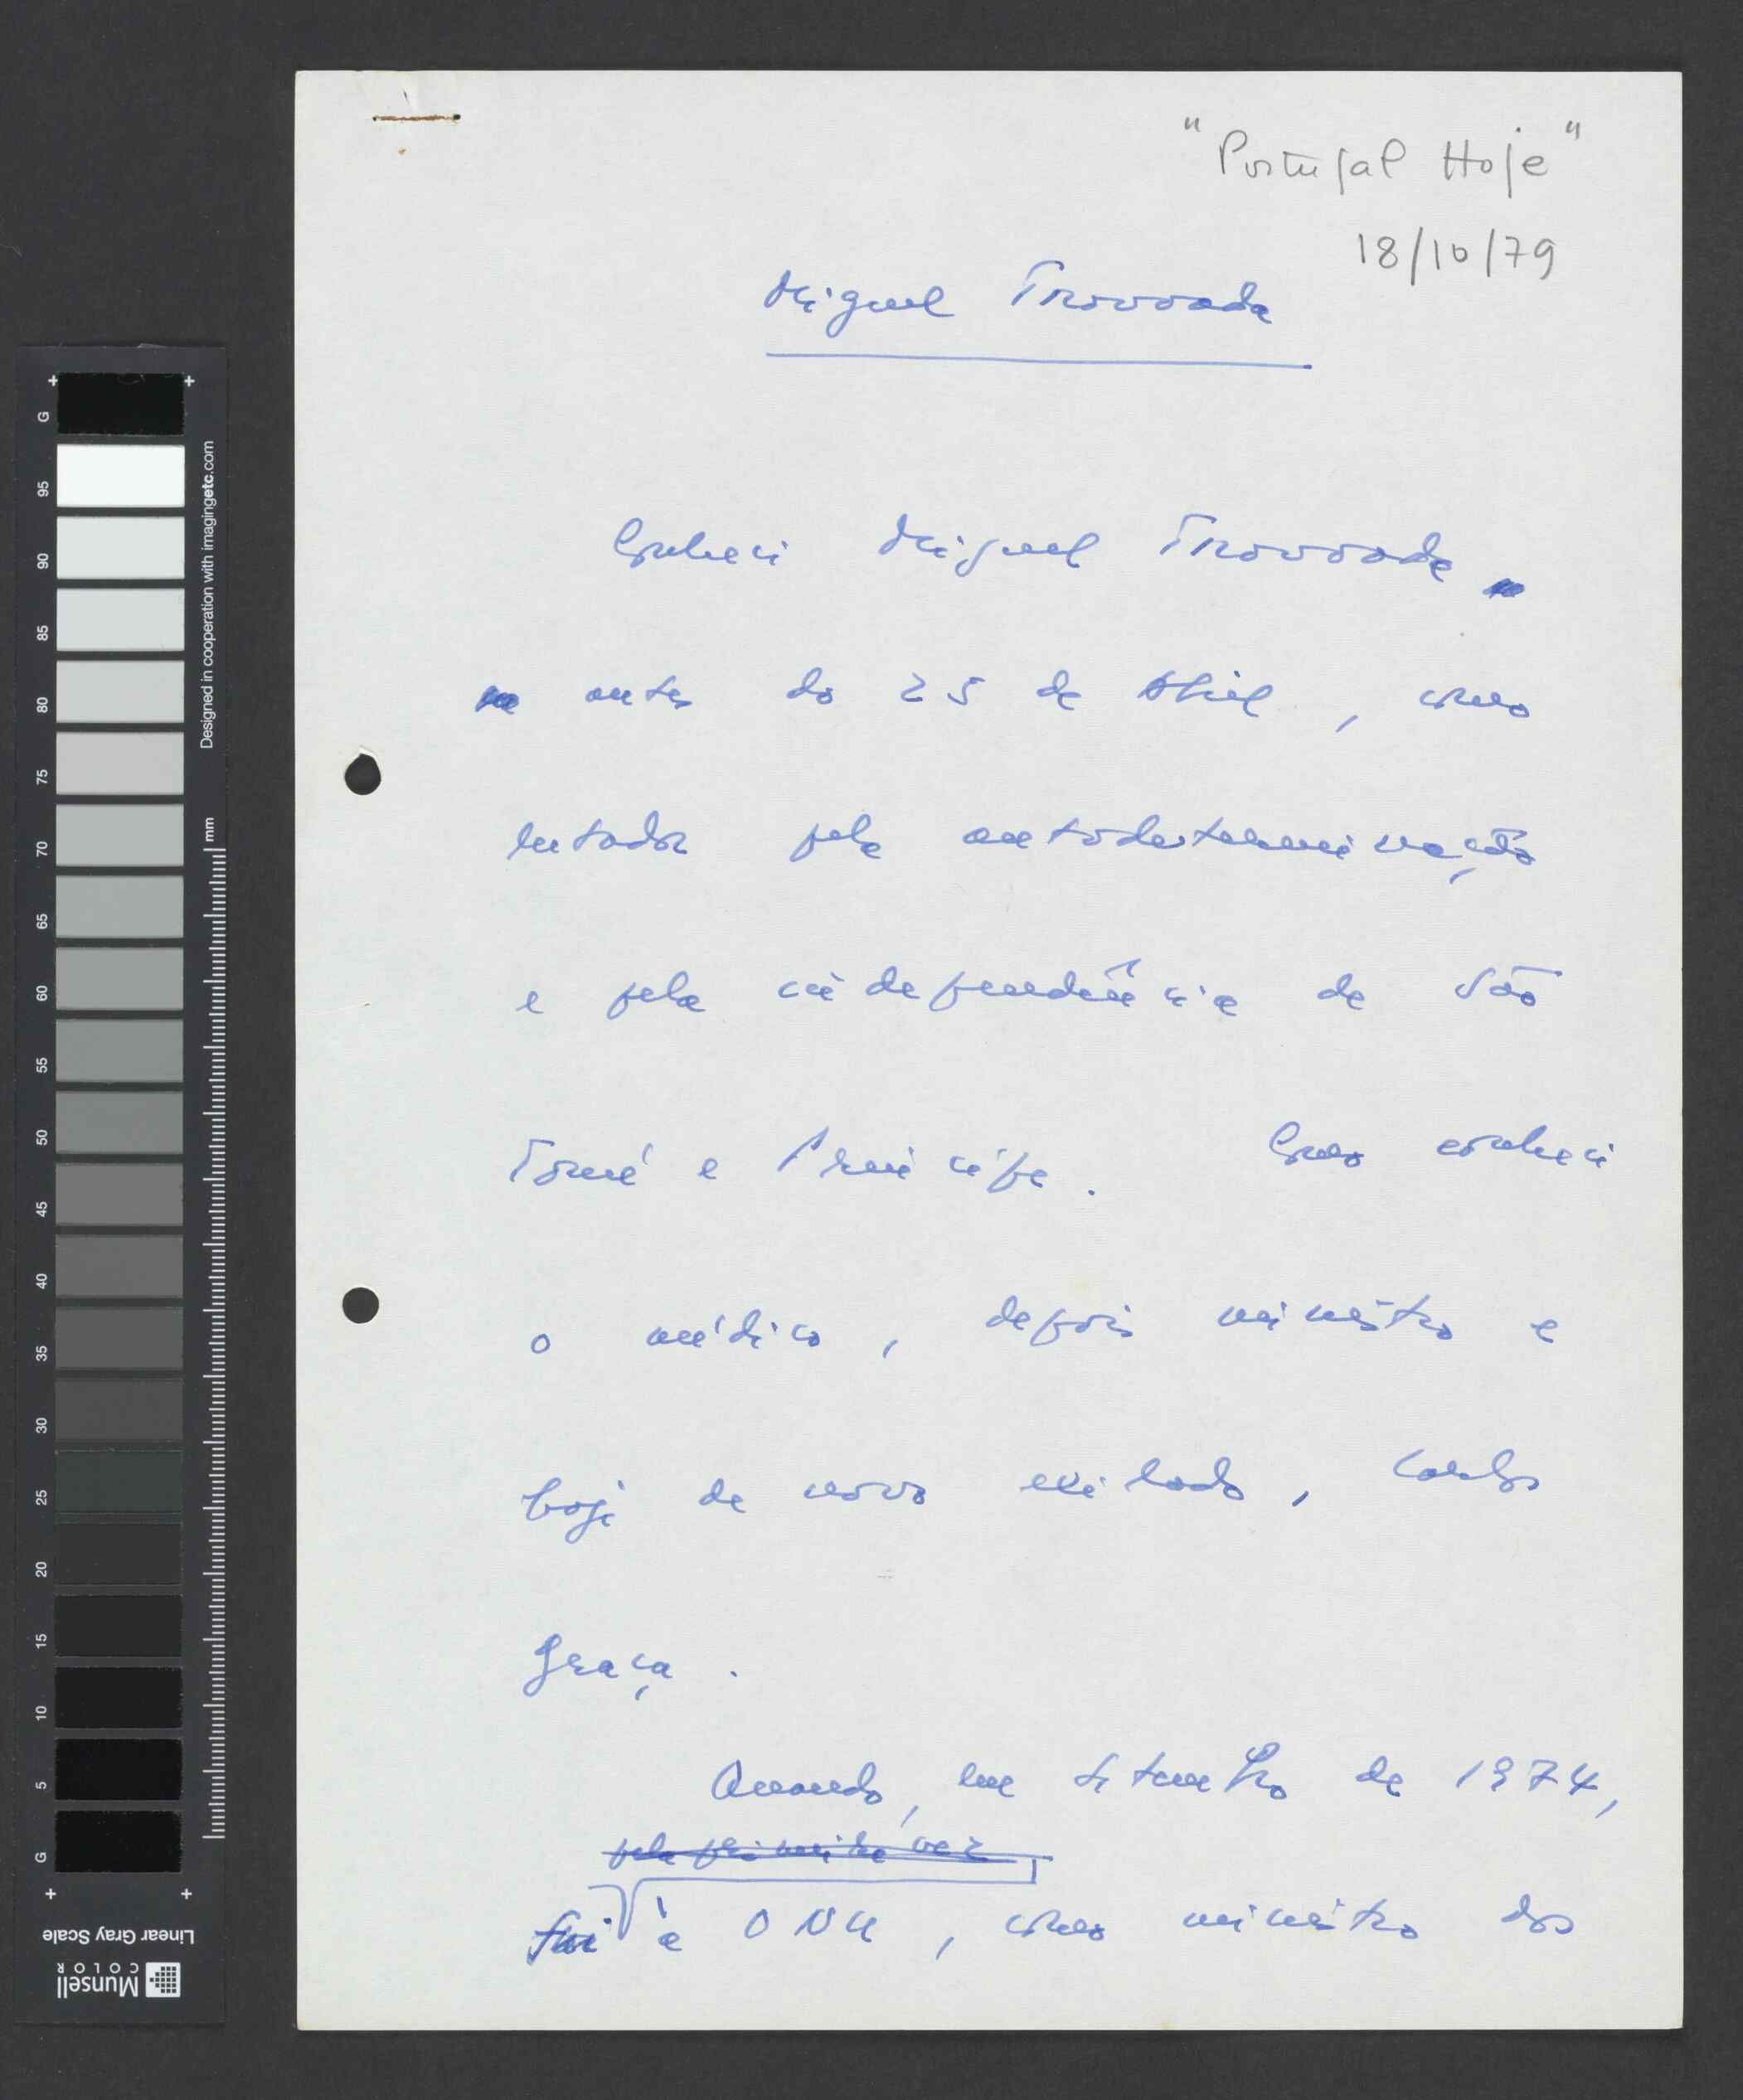 "Portugal Hoje"
18/10/79
Miguel Trovoada
Conheci Miguel Trovoada
antes do 25 de Abril, como
lutador pela autodeterminação
e pela independência de São
Tomé e Príncipe. Como conheci
o médico, depois ministro e
hoje de novo exilado, Carlos
Graça.
Quando, em Setembro de 1974,
pela primeira vez
fui à ONU, como ministro dos
G
95
90
85
80
75
70
65
60
55
50
45
40
35
30
25
20
15
10
5
G
mm
Designed in cooperation with imagingetc.com
Linear Gray Scale
Munsell
COLOR